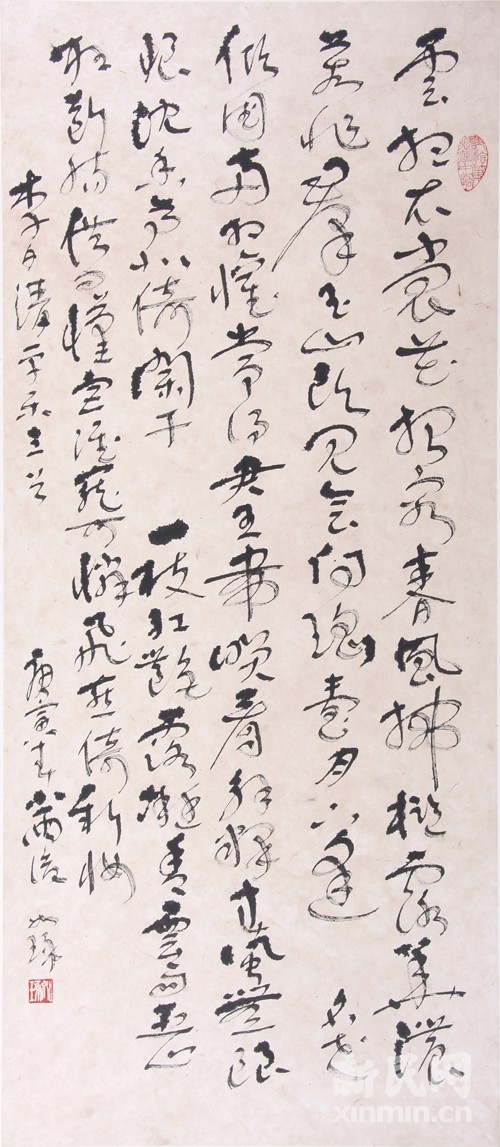 雲想衣裳花想容春風拂檻露華濃
若非群玉山頭見會向瑤臺月下逢 名花
傾國兩相歡常得君王帶笑看解釋春風無限
恨沈香亭北倚闌干 一枝紅艷露凝香雲雨巫山
枉斷腸借問漢宮誰可憐飛燕倚新妝
李白清平樂三首 庚寅春
新民网
xinmin.cn